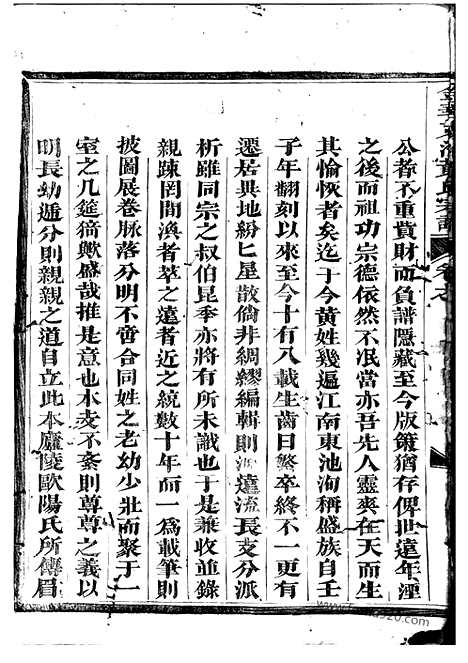 公者不重貲財而負譜隱藏至今版策猶存俾世遠年湮
之後而祖功宗德依然不泯當亦吾先人靈爽在天而生
其愉恢者矣迄于今黄姓幾遍江南東池洵稱盛族自壬
子年翻刻以來至今十有八載生齒日繁卒終不一更有
遷居異地紛匕星散倘非綢繆編輯則源遠流長支分派
析雖同宗之叔伯昆季亦將有所未識也于是兼收並錄
親疎罔間渙者萃之遠者近之統數十年而一爲載筆則
披圖展卷脉落分明不啻合同姓之老幼少壯而聚于一
室之几筵猗歟盛哉推是意也本支不紊則尊尊之義以
明長幼遞分則親親之道自立此本廬陵歐陽氏所傳眉